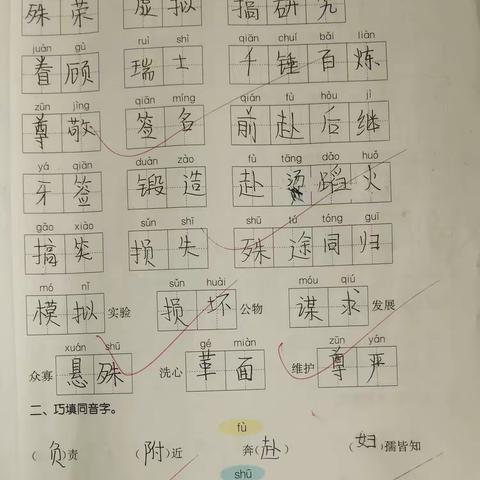 殊荣 虚拟 搞研究
juàn gù ruì shì qiān chuí bǎi liàn
眷顾 瑞士 千锤百炼
zūn jìng qiān míng qián fù hòu jì
尊敬 签名 前赴后继
yá qiān duàn zào fù tāng dǎo huǒ
牙签 锻造 赴汤蹈火
gǎo xiào sǔn shī shū tú tóng guī
搞笑 损失 殊途同归
mó nǐ sǔn huài móu qiú
模拟 实验 损坏 公物 谋求 发展
xuán shū gé miàn zūn yán
众寡 悬殊 洗心 革面 维护 尊严
二、巧填同音字。
fù
(负)责 (附)近 奔(赴) (妇)孺皆知
shū